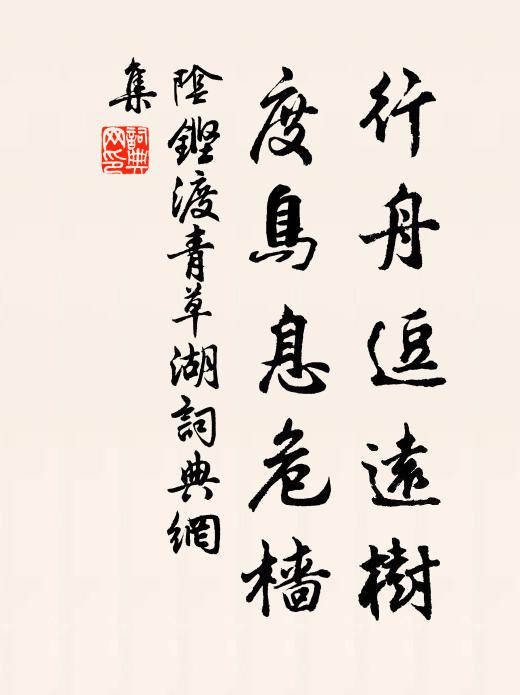 行舟逗遠樹
度鳥息危檣
陰鏗渡青草湖詞典網
集
詞典
网印